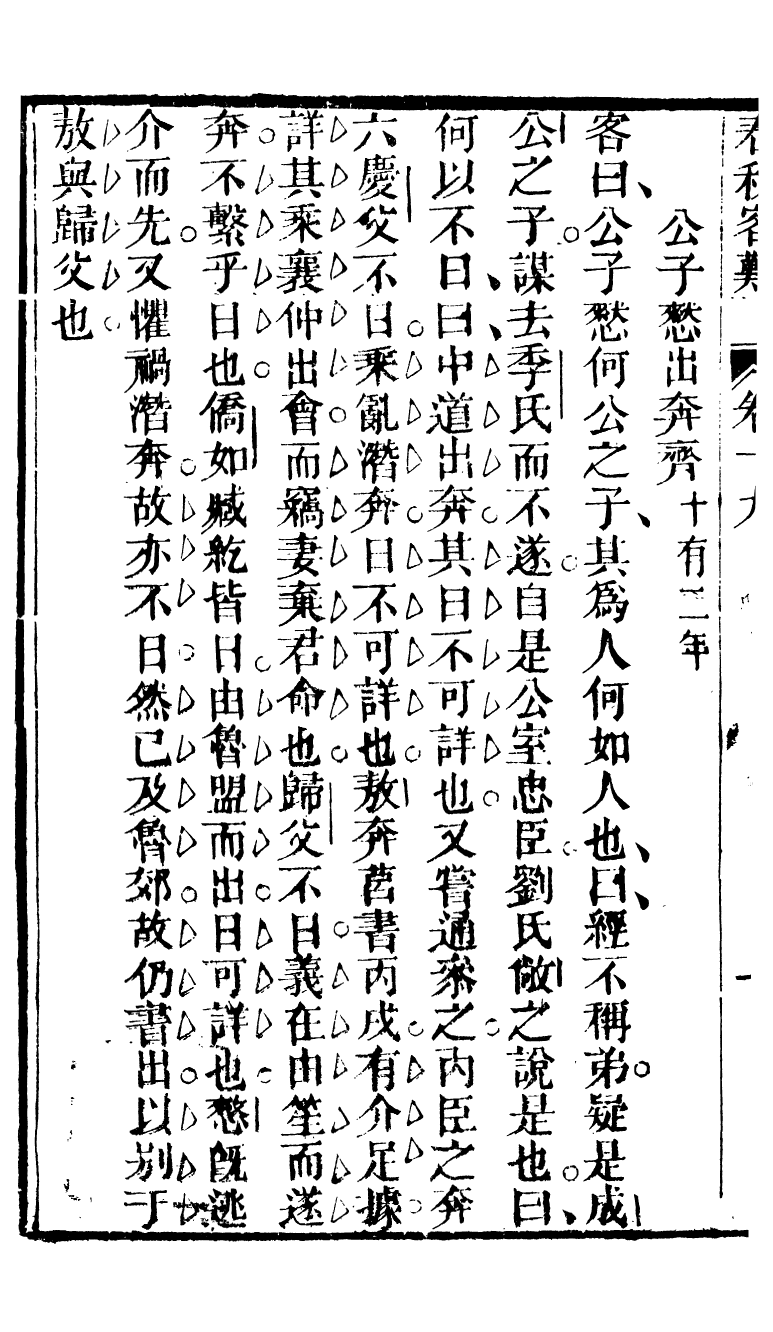 春秋客難 卷一九
公子憗出奔齊 十有二年
客曰公子憗何公之子其爲人何如人也曰經不稱弟疑是成
公之子謀去季氏而不遂自是公室忠臣劉氏敞之說是也曰
何以不日曰中道出奔其日不可詳也又嘗通桼之內臣之奔
六慶父不日乘亂潛奔日不可詳也敖奔莒書丙戌有介足據
詳其乘襄仲出會而竊妻棄君命也歸父不日義在由笙而遂
奔不繫乎日也僑如臧紇皆日由魯盟而出日可詳也憗旣逃
介而先又懼禍潛奔故亦不日然已及魯郊故仍書出以別于
敖與歸父也